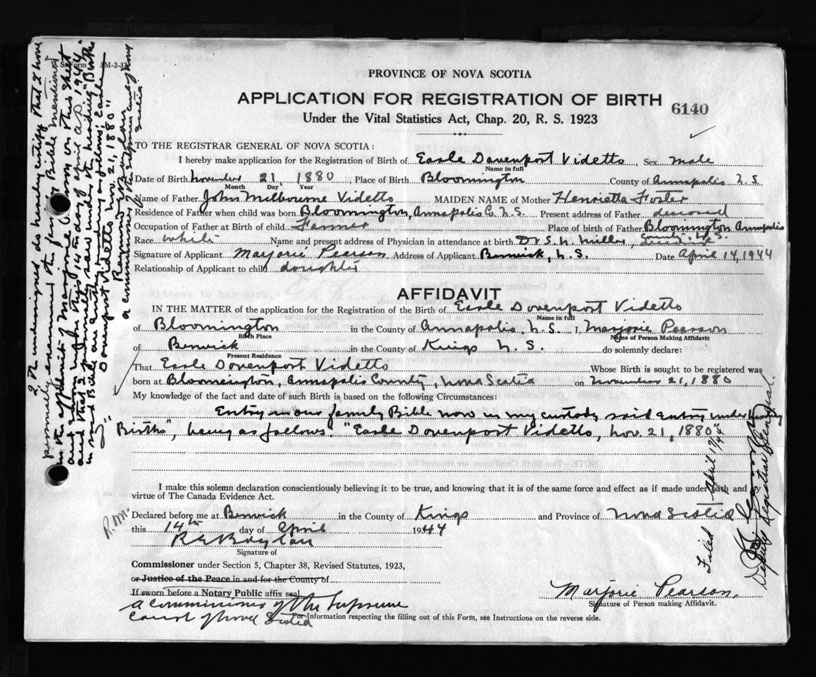 PROVINCE OF NOVA SCOTIA
APPLICATION FOR REGISTRATION OF BIRTH 6140
Under the Vital Statistics Act, Chap. 20, R. S. 1923
TO THE REGISTRAR GENERAL OF NOVA SCOTIA:
I hereby make application for the Registration of Birth of Earle Davenport Videtto Sex male
Name in full
Date of Birth November 21 1880, Place of Birth Bloomington County of Annapolis N.S.
Month Day Year
Name of Father John Milbourne Videtto MAIDEN NAME of Mother Henrietta Foster
Residence of Father when child was born Bloomington, Annapolis Co. N.S. Present address of Father deceased
Occupation of Father at Birth of child Farmer Place of birth of Father Bloomington Annapolis
Race white Name and present address of Physician in attendance at birth Dr. S. N. Miller,
Signature of Applicant Marjorie Pearson Address of Applicant Berwick, N.S. Date April 14, 1944
Relationship of Applicant to child daughter
AFFIDAVIT
IN THE MATTER of the application for the Registration of the Birth of Earle Davenport Videtto
Name in full
of Bloomington in the County of Annapolis, N.S. I, Marjorie Pearson
Birth Place Name of Person Making Affidavit
of Berwick in the County of Kings N.S. do solemnly declare:
Present Residence
That Earle Davenport Videtto Whose Birth is sought to be registered was
born at Bloomington, Annapolis County, Nova Scotia on November 21, 1880
My knowledge of the fact and date of such Birth is based on the following Circumstances:
Entry in our family Bible now in my custody said entry under heading
"Births", being as follows: "Earle Davenport Videtto, Nov. 21, 1880"
I make this solemn declaration conscientiously believing it to be true, and knowing that it is of the same force and effect as if made under oath and
virtue of The Canada Evidence Act.
Declared before me at Berwick in the County of Kings and Province of Nova Scotia
this 14th day of April 1944
Signature of
Commissioner under Section 5, Chapter 38, Revised Statutes, 1923,
or Justice of the Peace in and for the County of
If sworn before a Notary Public affix seal.
a Commissioner of the Supreme
Court of Nova Scotia
Marjorie Pearson
Signature of Person making Affidavit.
For Information respecting the filling out of this Form, see Instructions on the reverse side.
I, the undersigned, do hereby certify that I have
personally examined the family Bible mentioned
in the affidavit of Marjorie Pearson on this sheet
and that I on this 14th day of April A.D. 1944
in said Bible, an entry under the heading "Births"
Davenport Videtto, Nov. 21, 1880"
Filed April 17/44
Deputy Registrar General